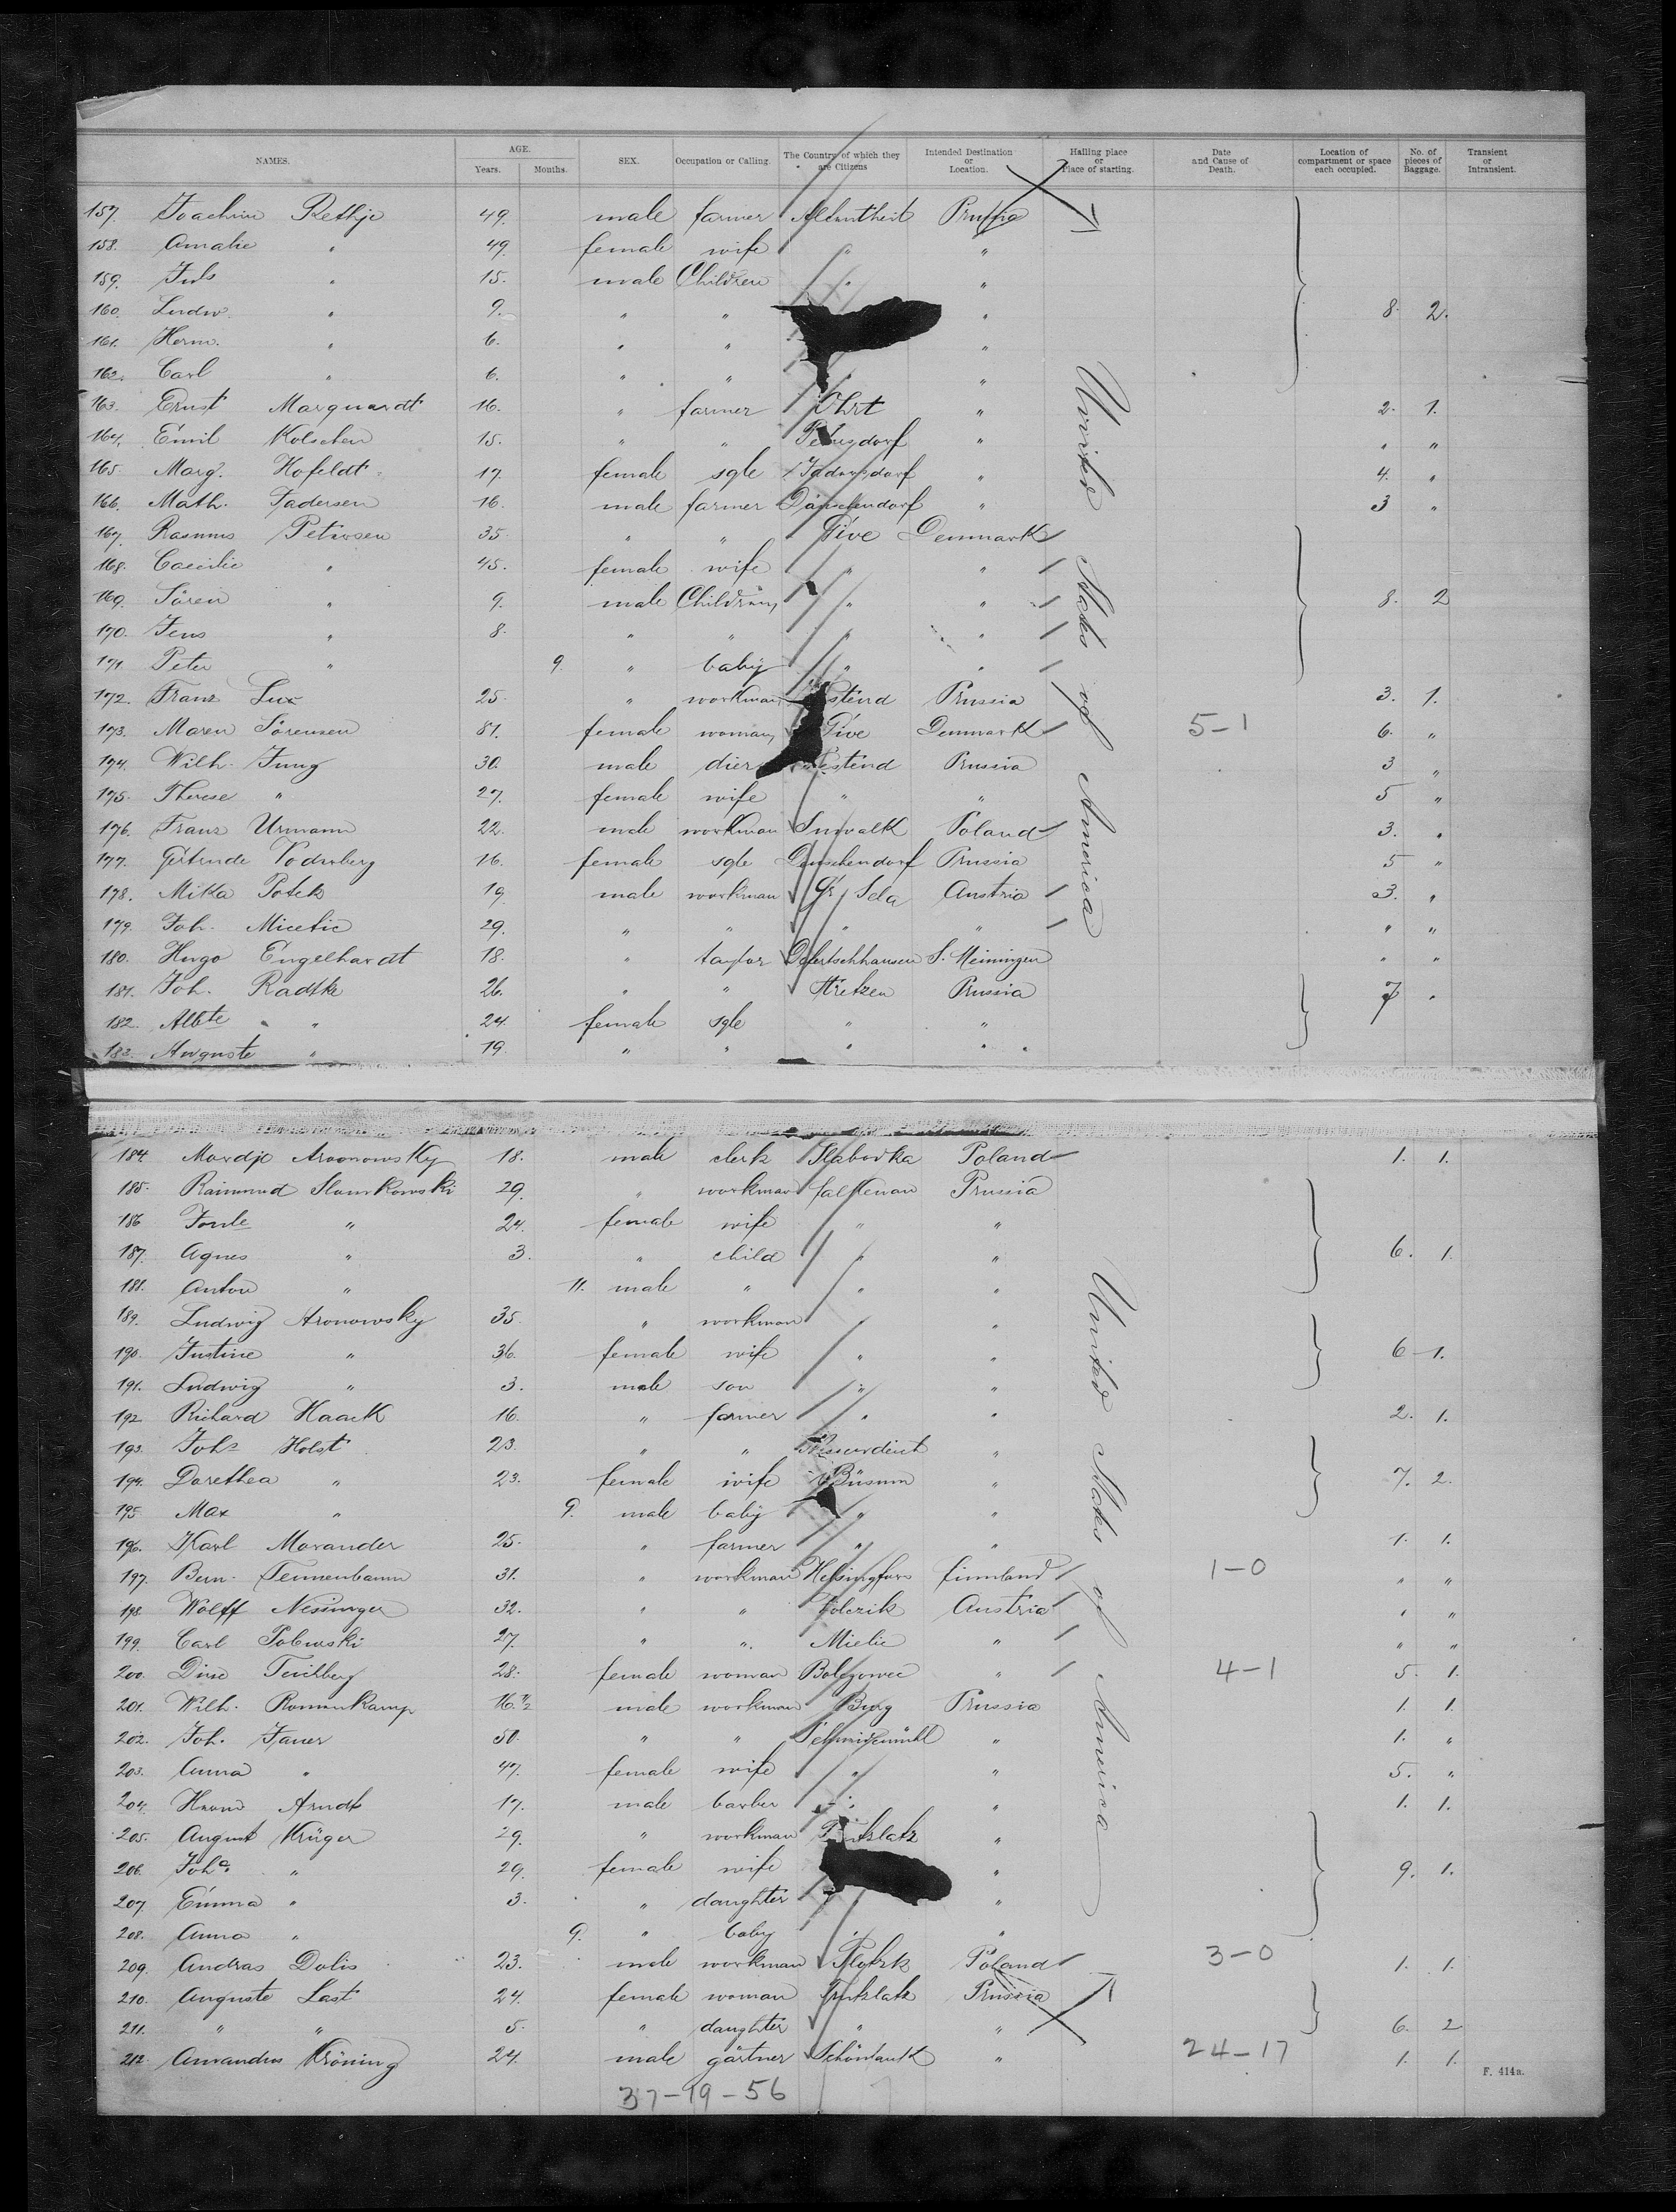 NAMES. AGE. Years. Months. SEX. Occupation or Calling. The Country of which they are Citizens Intended Destination or Location. Hailing place or Place of starting. Date and Cause of Death. Location of compartment or space each occupied. No. of pieces of Baggage. Transient or Intransient.
157. Joachim Rethje 49. male farmer Prussia
158. Amalie " 49. female wife " "
159. Juls " 15. male Children " "
160. Ludw. " 9. " " " 8. 2.
161. Herm. " 6. " " "
162. Carl " 6. " " " "
163. Ernst Marquardt 16. " farmer Ohrt " 2. 1.
164. Emil Kolschen 15. " " Petersdorf " " "
165. Marg. Hofeldt 17. female sgle " 4. "
166. Math. Fadersen 16. male farmer Dänschendorf " 3 "
167. Rasmus Petersen 35. " " Give Denmark
168. Caecilie " 45. female wife " "
169. Sören " 9. male Children " " 8. 2
170. Jens " 8. " " " "
171. Peter " 9. " baby " "
172. Franz Lux 25. " workman Prussia 3. 1.
173. Maren Sörensen 81. female woman Give Denmark 5-1 6. "
174. Wilh. Jung 30. male dier Prussia 3 "
175. Therese " 27. female wife " " 5 "
176. Franz Urmann 22. male workman Suwalk Poland 3. "
177. Gertrude Voderberg 16. female sgle Denschendorf Prussia 5 "
178. Mika Potek 19. male workman Gr. Sela Austria 3. "
179. Joh. Micetic 29. " " " " " "
180. Hugo Engelhardt 18. " taylor S. Meiningen " "
181. Joh. Radtke 26. " " Prussia 7 "
182. Albte " 24. female sgle " "
183. Auguste " 19. " " " "
184. Mordje Aroonowsky 18. male clerk Slabodka Poland 1. 1.
185. Raimund Slamkowski 29. " workman Falkenau Prussia
186 " 24. female wife " "
187. Agnes " 3. " child " " 6. 1.
188. Anton " 11. male " " "
189. Ludwig Aronowsky 35. " workman "
190. Justine " 36. female wife " " 6 1.
191. Ludwig " 3. male son " "
192 Richard Haack 16. " farmer " " 2. 1.
193. Johs Holst 23. " " "
194. Dorethea " 23. female wife Büsum " 7. 2.
195. Max " 9. male baby " "
196. Karl Morander 25. " farmer " " 1. 1.
197. Bern. Tennenbaum 31. " workman Helsingfors finnland 1-0 " "
198 Wolff Nessinger 32. " " Austria " "
199. Carl 27. " " Mielic " " "
200. Dine Teichberg 28. female woman " 4-1 5. 1.
201. Wilh. Rommkamp 16. 1/2 male workman Burg Prussia 1. 1.
202. Joh. Jauer 50. " " Schneidemühl " 1. "
203. Anna " 47. female wife " " 5. "
204. Arndt 17. male barber " " 1. 1.
205. August Krüger 29. " workman "
206. Joha. " 29. female wife " 9. 1.
207. Emma " 3. " daughter "
208. Anna " 9. " baby " "
209. Andras Dolis 23. male workman Plotzk Poland 3-0 1. 1.
210. Auguste Last 24. female woman Prussia
211. " " 5. " daughter " " 6. 2
212. Kröning 24. male gärtner Schönlank " 24-17 1. 1.
F. 414a.
37-19-56
United States of America
United States of America